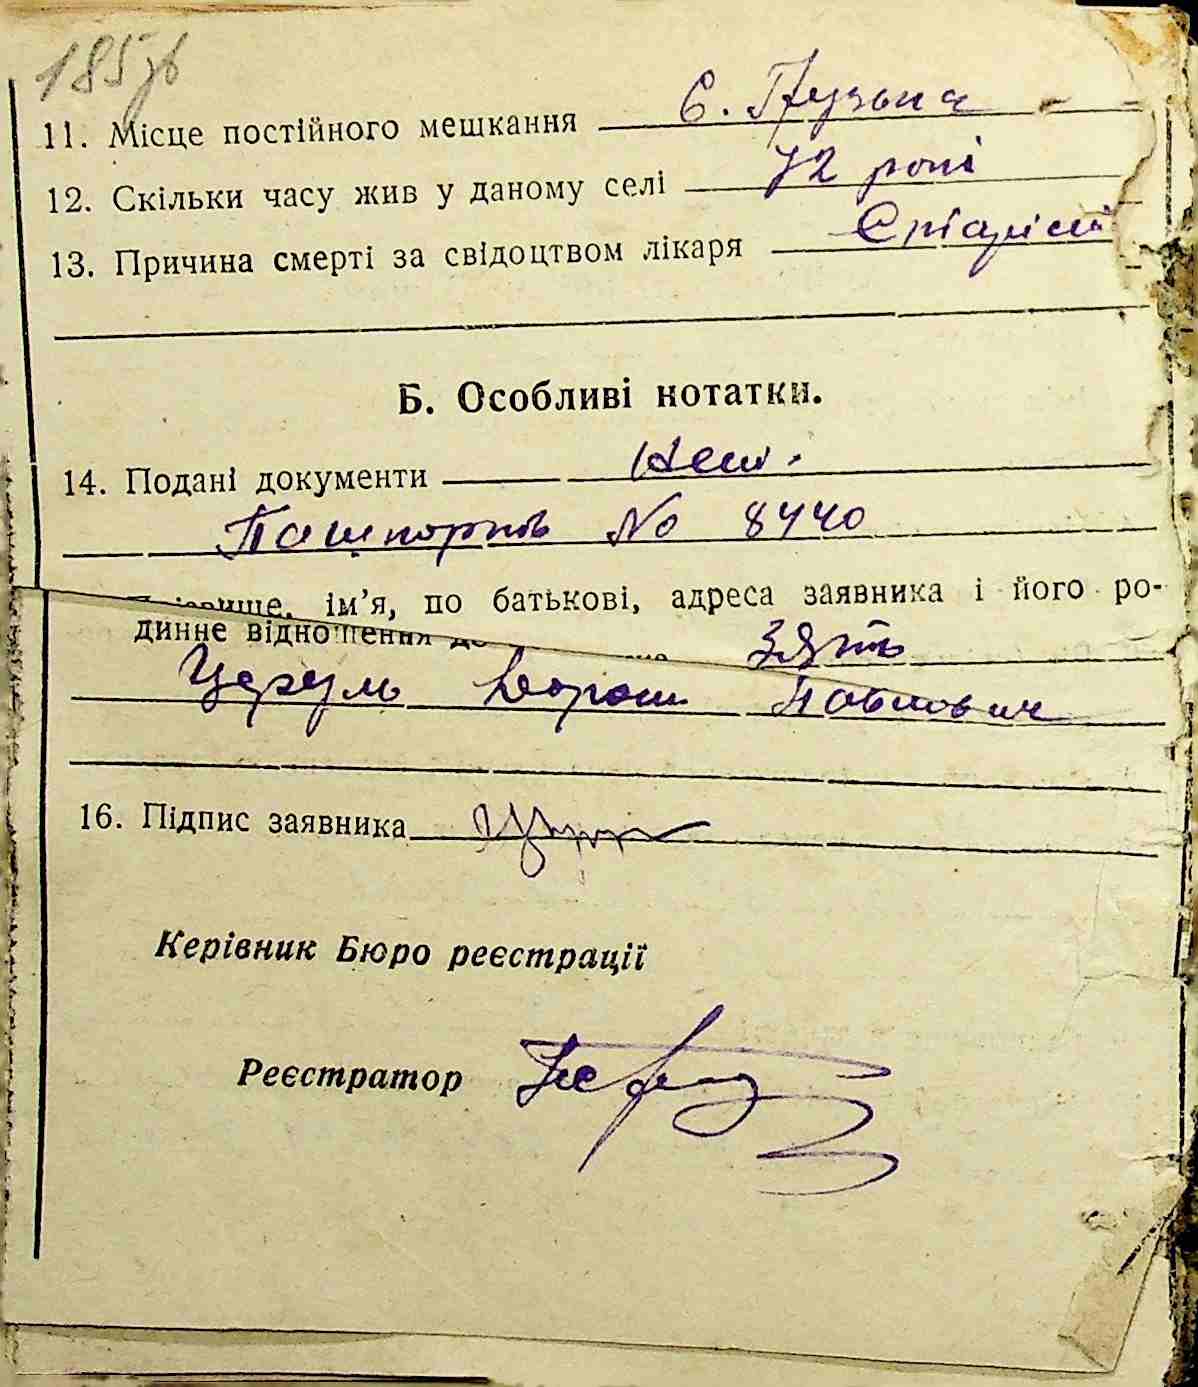 185зв
11. Місце постійного мешкання с. Грузька
12. Скільки часу жив у даному селі 72 роки
13. Причина смерти за свідоцтвом лікаря Старість
Б. Особливі нотатки.
14. Подані документи
Пашпортів No 8440
ім'я, по батькові, адреса заявника і його ро-
динне відношення до зять
Павлович
16. Підпис заявника
Керівник Бюро реєстрації
Реєстратор